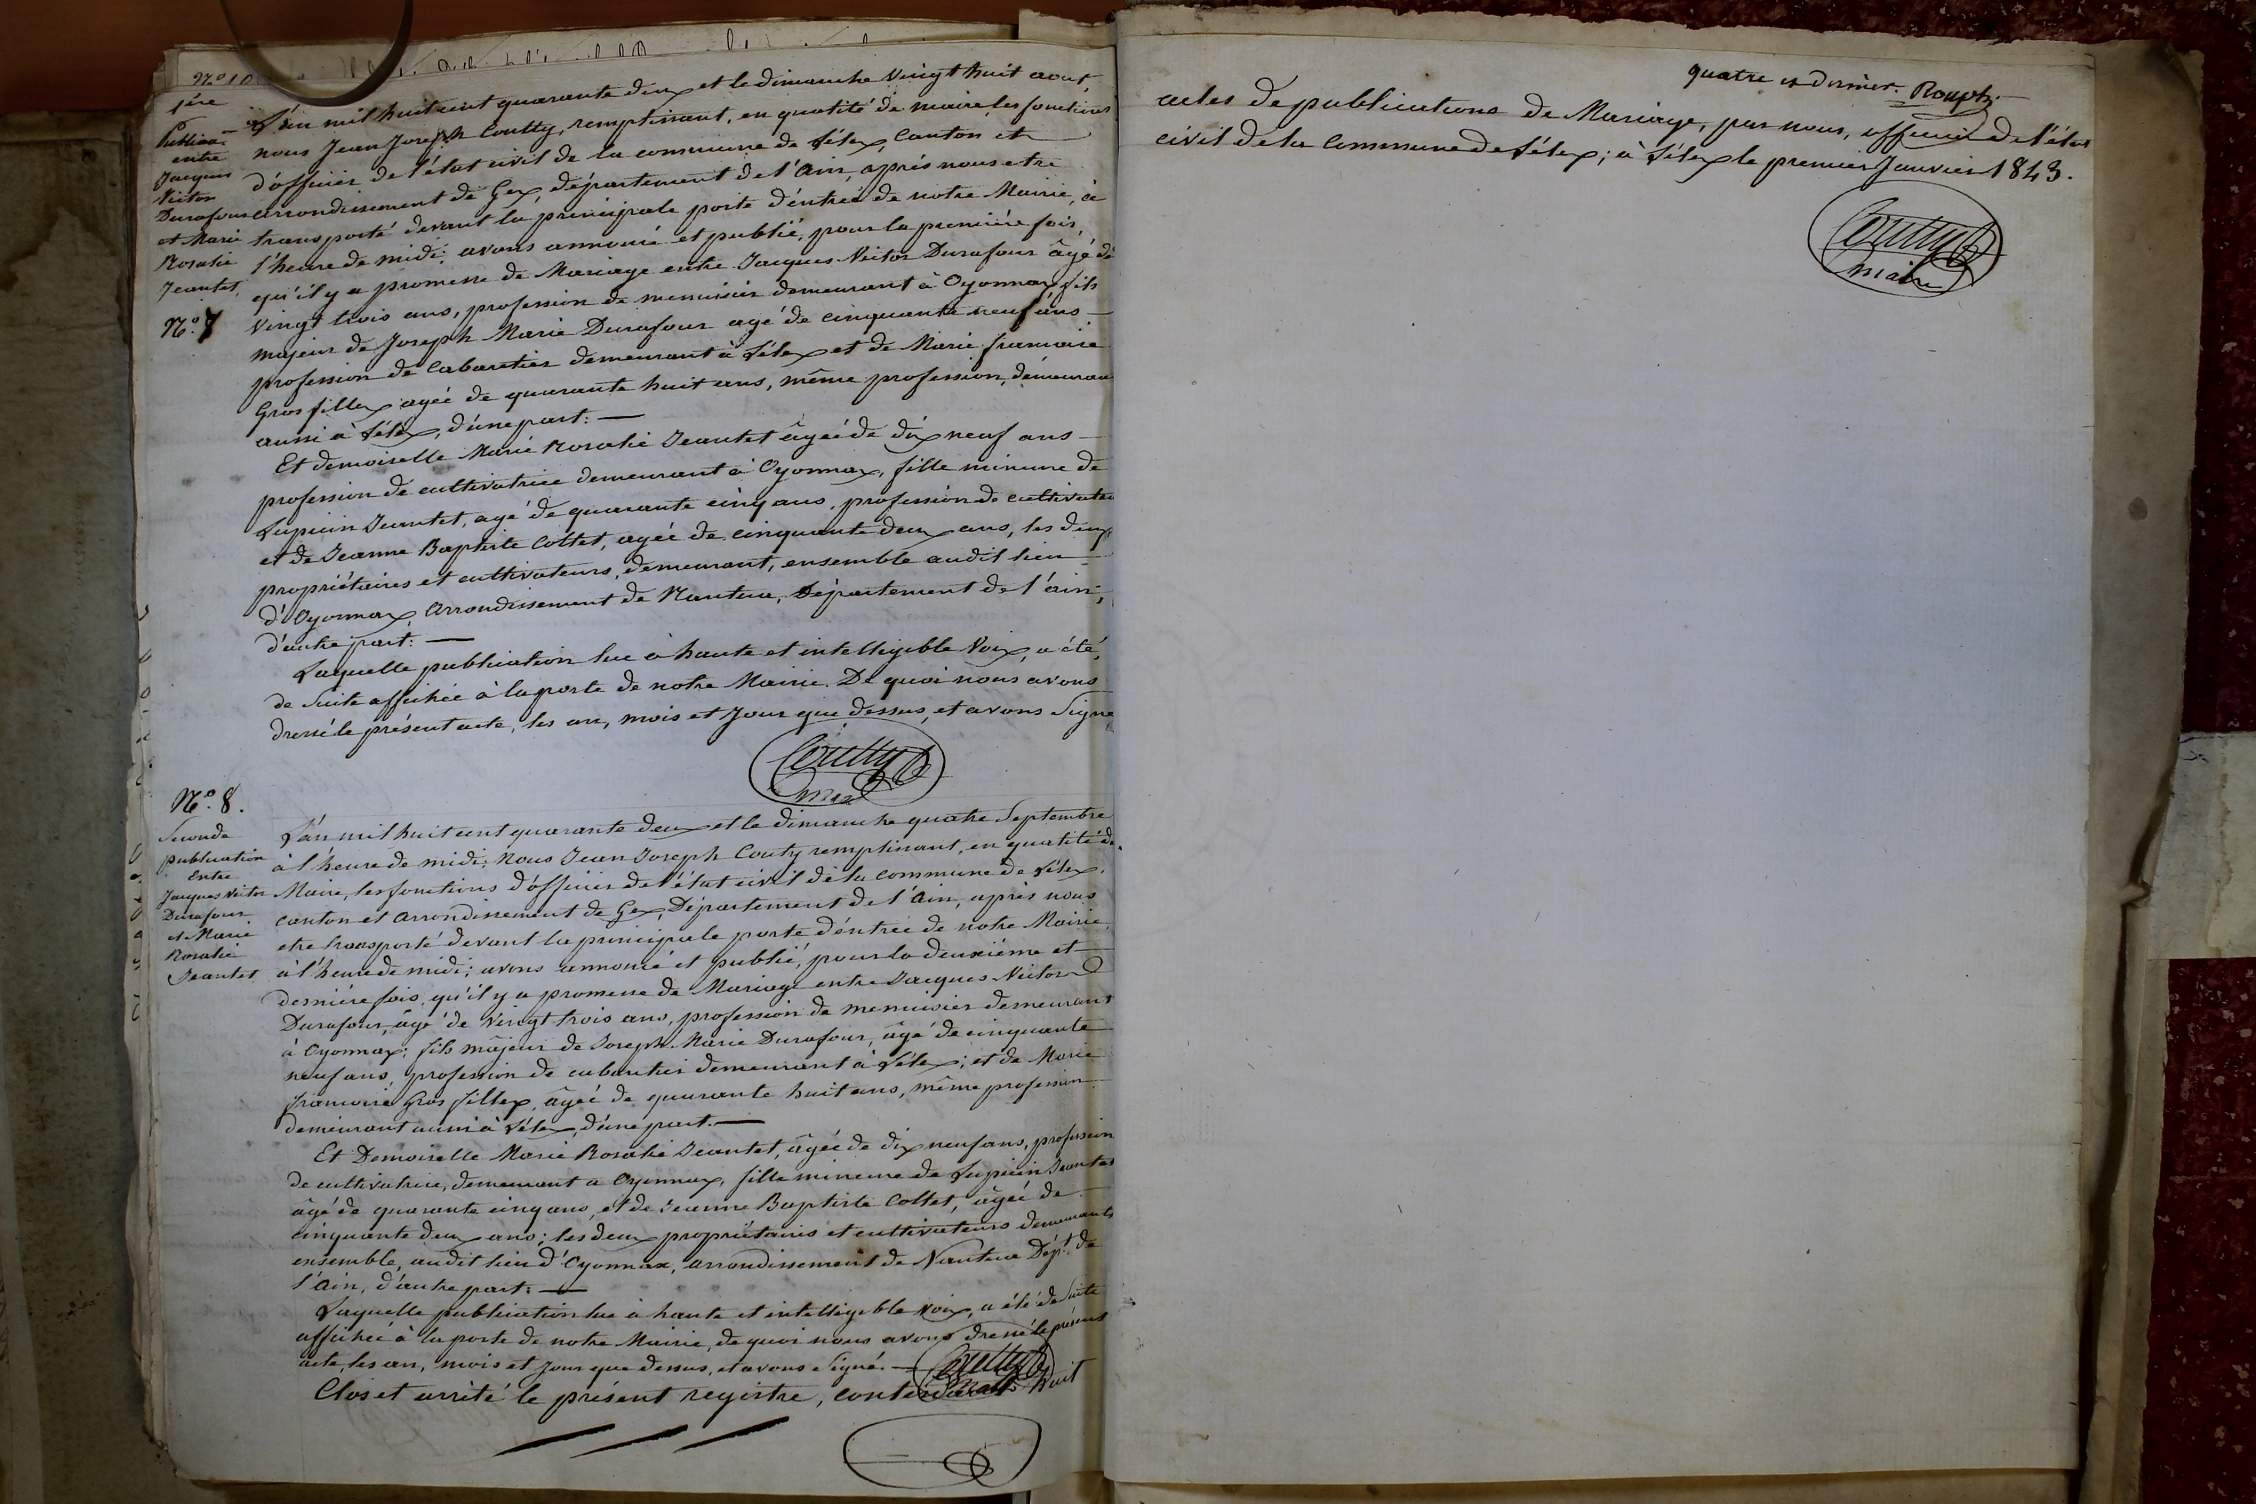 1ère
Publica-
entre
Jacques
Victor
Durafour
et Marie
Rosalie
Jeantet.
N.º 7
L'án mil huit cent quarante deux et le dimanche vingt huit aout,
nous Jean Joseph Coutty, remplissant, en qualité de maire les fonctions
d'officier de l'état civil de la commune de Lélex, canton et
arrondissement de Gex, département de l'Ain, après nous etre
transporté devant la principale porte d'éntrée de notre Mairie, à
l'heure de midi; avons annoncé et publié, pour la première fois,
qu'il y a promesse de Mariage entre Jacques Victor Durafour âgé de
vingt trois ans, profession de menuisier demeurant à Oyonnax, fils
majeur de Joseph Marie Durafour agé de cinquante neuf áns
profession de Cabaretier demeurant à Lélex et de Marie francoise
Gros fillex agée de quarante huit ans, même profession, démeurant
aussi à Lélex, d'úne part: —
Et demoiselle Marie Rosalie Jeantet âgée de dix neuf ans
profession de cultivatrice demeurant à Oyonnax, fille mineure de
Lupicin Jeantet, agé de quarante cinq ans, profession de cultivateur
et de Jeanne Baptiste Collet, agée de cinquante deux ans, les deux
propriétaires et cultivateurs, demeurant, ensemble audit lieu
d'Oyonnax, Arrondissement de Nantua, Département de l'ain,
d'autre part: —
Laquelle publication lue à haute et intelligible voix, a été,
de suite affichée à la porte de notre Mairie. De quoi nous avons
dressé le présent acte, les an, mois et jour que dessus, et avons signé
Coutty
N.º 8.
Seconde
publication
Entre
Jacques Victor
Durafour
et Marie
Rosalie
Jeantet
L'án mil huit cent quarante deux et le dimanche quatre Septembre
à l'heure de midi; Nous Jean Joseph Couty remplissant, en qualité de
Maire, les fonctions d'officier de l'état civil de la commune de Lélex,
canton et arrondissement de Gex, Département de l'Ain, après nous
etre transporté devant la principale porte d'éntrée de notre Mairie,
à l'heure de midi; avons annoncé et publié, pour la deuxième et
dernière fois, qu'il y a promesse de Mariage entre Jacques Victor
Durafour, âgé de vingt trois ans, profession de menuisier demeurant
à Oyonnax; fils majeur de Joseph Marie Durafour, âgé de cinquante
neuf ans, profession de cabaretier demeurant à Lélex; et de Marie
francoise Gros fillex, âgée de quarante huit ans, même profession
demeurant aussi à Lélex, d'úne part. —
Et Demoiselle Marie Rosalie Jeantet, âgée de dix neuf ans, profession
de cultivatrice, demeurant a Oyonnax, fille mineure de Lupicin Jeantet
âgé de quarante cinq ans, et de Jeanne Baptiste Collet, âgée de
cinquante deux ans; les deux propriétaires et cultivateurs demeurants
ensemble, audit lieu d'Oyonnax, arrondissement de Nantua Dép.t de
l'Ain, d'autre part: —
Laquelle publication lue à haute et intelligible voix, a été de suite
affichée à la porte de notre Mairie, de quoi nous avons dressé le présent
acte, les an, mois et jour que dessus, et avons signé. —
Coutty
Clos et arrêté le présent registre, contenant huit
quatre et dernier. Rouph.
actes de publications de Mariage, par nous, officier de l'état
civil de la Commune de Lélex; à Lélex le premier Janvier 1843.
Coutty
maire